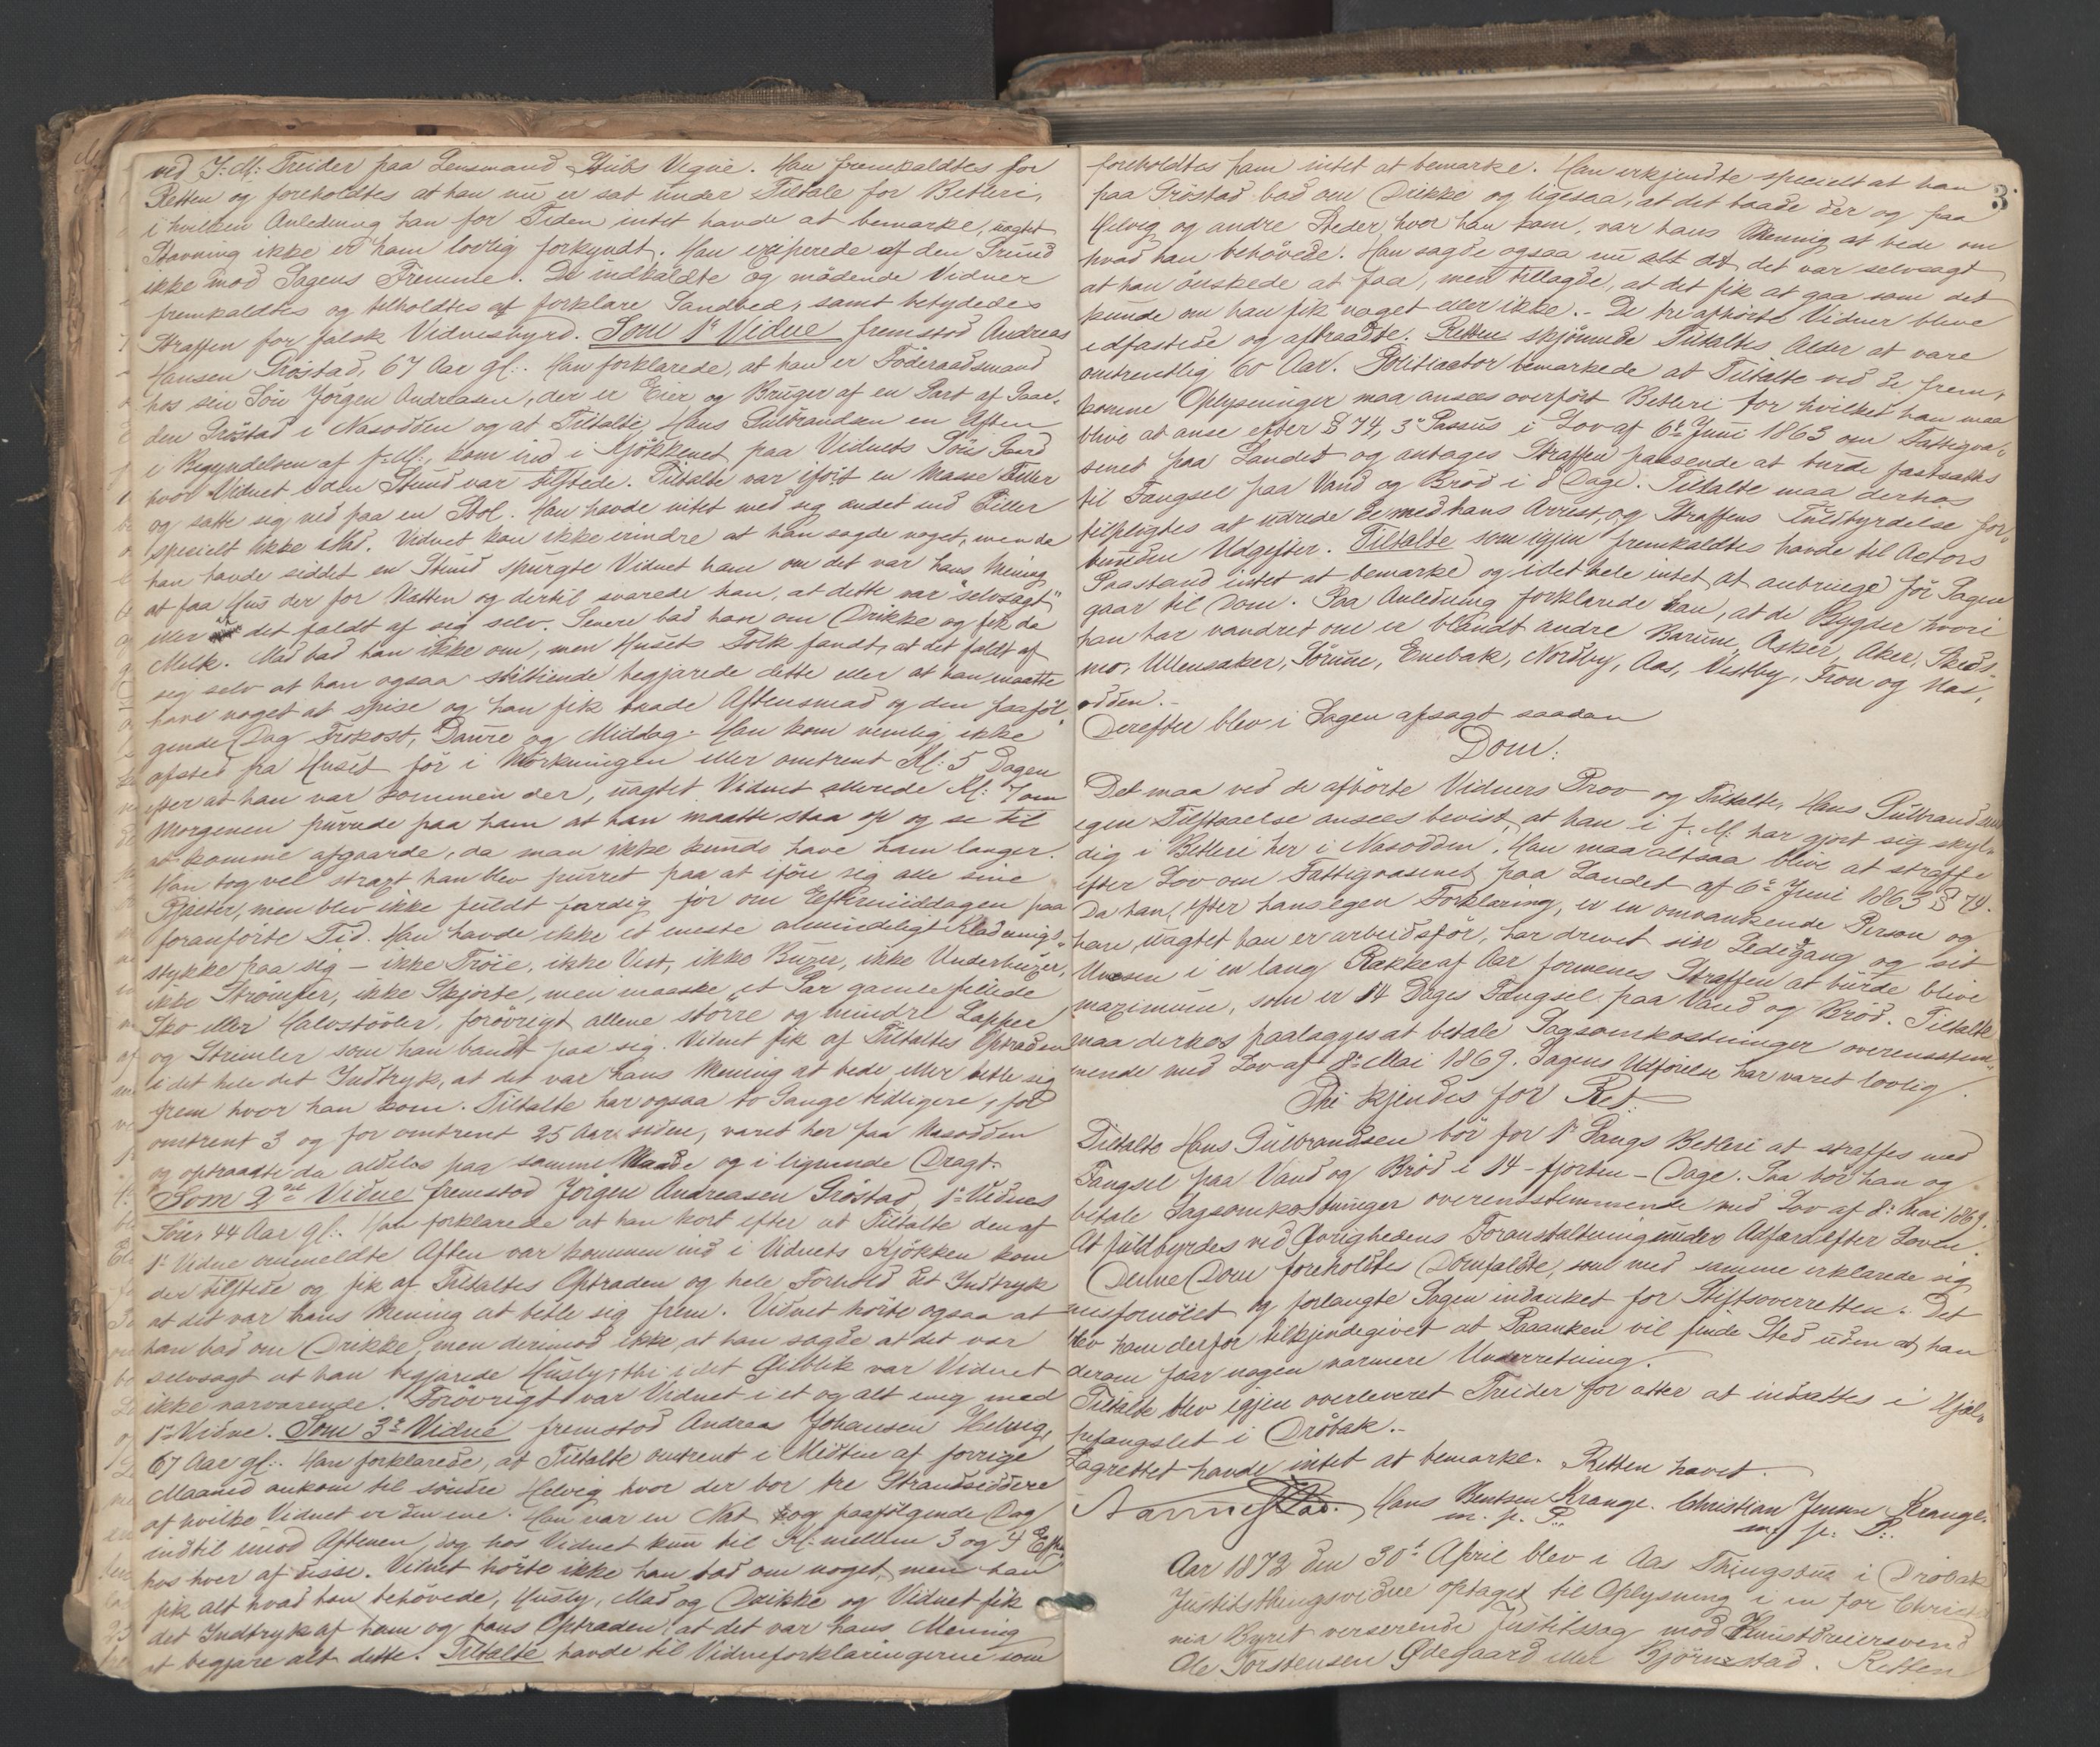 ved J: M: Treider paa Lensmand Stubs Vegne. Han fremkaldtes for
Retten og foreholdtes at han nu er sat under Tiltale for Betleri,
i hvilken Anledning han for Tiden intet havde at bemærke, uagtet
Stævning ikke er ham lovlig forkyndt. Han exiperede af den Grund
ikke mod Sagens Fremme. De indkaldte og mödende Vidner
fremkaldtes og tilholdtes at forklare Sandhed, samt betydedes
Straffen for falsk Vidnesbyrd. Som 1ste Vidne fremstod Andreas
Hansen Gröstad, 67 Aar gl:. Han forklarede, at han er Föderaadsmand
hos sin Sön Jörgen Andreasen, der er Eier og Bruger af en Part af Gaar-
den Gröstad i Næsodden og at Tiltalte, Hans Gulbrandsen en Aften
i Begyndelsen af f: M:, kom ind i Kjökkenet paa Vidnets Söns Gaard
hvor Vidnet i den Stund var tilstede. Tiltalte var iført en Masse Filler
og satte sig ned paa en Stol. Han havde intet med sig andet end Filler
specielt ikke Mad. Vidnet kan ikke erindre at han sagde noget, men da
han havde siddet en Stund spurgte Vidnet ham om det var hans Mening
at faa Hus der for Natten og dertil svarede han, at dette var "selvsagt"
eller at det faldt af sig selv. Senere bad han om Drikke og fik da
Melk. Mad bad han ikke om, men Husets Folk fandt, at det faldt af
sig selv at han ogsaa stiltiende begjærede dette eller at han maatte
have noget at spise og han fik baade Aftensmad og den paaföl-
gende Dag Frokost, Daure og Middag. Han kom nemlig ikke
afsted fra Huset för i Mörkningen eller omtrent Kl: 5 Dagen
efter at han var kommen der, uagtet Vidnet allerede Kl: 7 om
Morgenen purrede paa ham at han maatte staa op og se til
at komme afgaarde, da man ikke kunde have ham længer.
Han tog vel strax han blev purret paa at iföre sig alle sine
Pjalter, men blev ikke fuldt færdig för om Eftermiddagen paa
foranförte Tid. Han havde ikke et eneste almindeligt Klædnings-
stykke paa sig – ikke Tröie, ikke Vest, ikke Buxer, ikke Underbuxer,
ikke Strömper, ikke Skjorte, men maaske et Par gamle fillede
Sko eller Halvstövler, forövrigt allene större og mindre Lapper
og Strimler som han bandt paa sig. Vidnet fik af Tiltaltes Optræden
i det hele det Indtryk, at det var hans Mening at bede eller betle sig
frem hvor han kom. Tiltalte har ogsaa to Gange tidligere, for
omtrent 3 og for omtrent 25 Aar siden, været her paa Næsodden
og optraadte da aldeles paa samme Maade og i lignende Dragt.
Som 2det Vidne fremstod Jörgen Andreasen Gröstad, 1ste Vidnes
Sön, 44 Aar gl:. Han forklarede at han kort efter at Tiltalte den af
1ste Vidne ommeldte Aften var kommen ind i Vidnets Kjökken kom
der tilstede og fik af Tiltaltes Optræden og hele Forhold det Indtryk
at det var hans Mening at betle sig frem. Vidnet hörte ogsaa at
han bad om Drikke, men derimod ikke at han sagde at det var
selvsagt at han begjærede Husly, thi i det Öieblik var Vidnet
ikke nærværende. Forövrigt var Vidnet i et og alt enig med
1ste Vidne. Som 3die Vidne fremstod Andreas Johansen Helvig,
67 Aar gl:. Han forklarede, at Tiltalte omtrent i Midten af forrige
Maaned ankom til söndre Helvig hvor der bor tre Strandsiddere
af hvilke Vidnet er den ene. Han var en Nat og paafölgende Dag
indtil imod Aftenen, dog hos Vidnet kun til Kl: mellem 3 og 4 Efm
hos hver af disse. Vidnet hörte ikke han bad om noget, men han
fik alt hvad han behövede, Husly, Mad og Drikke og Vidnet fik
det Indtryk af ham og hans Optræden at det var hans Mening
at begjære alt dette. Tiltalte havde til Vidneforklaringerne som
3
foreholdtes ham intet at bemærke. Han erkjendte specielt at han
paa Gröstad bad om Drikke og ligesaa, at det baade der og paa
Helvig og andre Steder, hvor han kom, var hans Mening at bede om
hvad han behövede. Han sagde ogsaa nu alt at det var selvsagt
at han önskede at faa, men tillagde, at det fik at gaa som det
kunde om han fik noget eller ikke. – De tre afhörte Vidner bleve
edfæstede og aftraadte. Retten skjönnede Tiltaltes Alder at være
omtrentlig 60 Aar. Politiactor bemærkede at Tiltalte ved de frem-
komne Oplysninger maa ansees overfört Betleri for hvilket han maa
blive at anse efter § 74, 3die Passus i Lov af 6te Juni 1863 om Fattigvæ-
senet paa Landet og antages Straffen passende at burde fastsættes
til Fængsel paa Vand og Bröd i 8 Dage. Tiltalte maa derhos
tilpligtes at udrede de med hans Arrest og Straffens Fuldbyrdelse for-
bunden Udgifter. Tiltalte som igjen fremkaldtes havde til Actors
Paastand intet at bemærke og i det hele intet at anbringe för Sagen
gaar til Dom. Paa Anledning forklarede han, at de Bygder hvori
han har vandret om er blandt andre Bærum, Asker, Aker, Skeds-
mo, Ullensaker, Sörum, Enebak, Nordby, Aas, Vestby, Fron og Næs-
odden. –
Derefter blev i Sagen afsagt saadan
Dom:
Det maa ved de afhörte Vidners Prov og Tiltalte, Hans Gulbrandsens
egen Tilstaaelse ansees bevist, at han i f: M: har gjort sig skyl-
dig i Betleri her i Næsodden. Han maa altsaa blive at straffe
efter Lov om Fattigvæsenet paa Landet af 6te Juni 1863 § 74.
Da han, efter hans egen Forklaring, er en omvankende Person og
han, uagtet han er arbeidsför, har drevet sin Ledigang og sit
Uvæsen i en lang Række af Aar formenes Straffen at burde blive
maximum, som er 14 Dages Fængsel paa Vand og Bröd. Tiltalte
maa derhos paalægges at betale Sagsomkostninger overensstem-
mende med Lov af 8de Mai 1869. Sagens Udförelse har været lovlig.
Thi kjendes for Ret:
Tiltalte Hans Gulbrandsen bör for 1ste Gangs Betleri at straffes med
Fængsel paa Vand og Bröd i 14 – fjorten – Dage. Saa bör han og
betale Sagsomkostninger overensstemmende med Lov af 8de Mai 1869.
At fuldbyrdes ved Övrighedens Foranstaltning under Adfærd efter Loven.
Denne Dom foreholdtes Domfældte, som med samme erklærede sig
misfornöiet og forlangte Sagen indanket for Stiftsoverretten. Det
blev ham derfor tilkjendegivet at Paaanken vil finde Sted uden at han
derom faar nogen nærmere Underretning.
Tiltalte blev igjen overleveret Treider for atter at indsættes i Hjæl-
pefængslet i Dröbak. –
Lagrettet havde intet at bemærke. Retten hævet.
Hans Bentsen Krange. Christian Jensen Krange.
m. p. P. m. p. P.
Aar 1872 den 30te April blev i Aas Thingstua i Dröbak
Justitsthingsvidne optaget til Oplysning i en for Christia
nia Byret verserende Justitssag mod Kunstdreiersvend
Ole Torstensen Ödegaard eller Björnstad. Retten